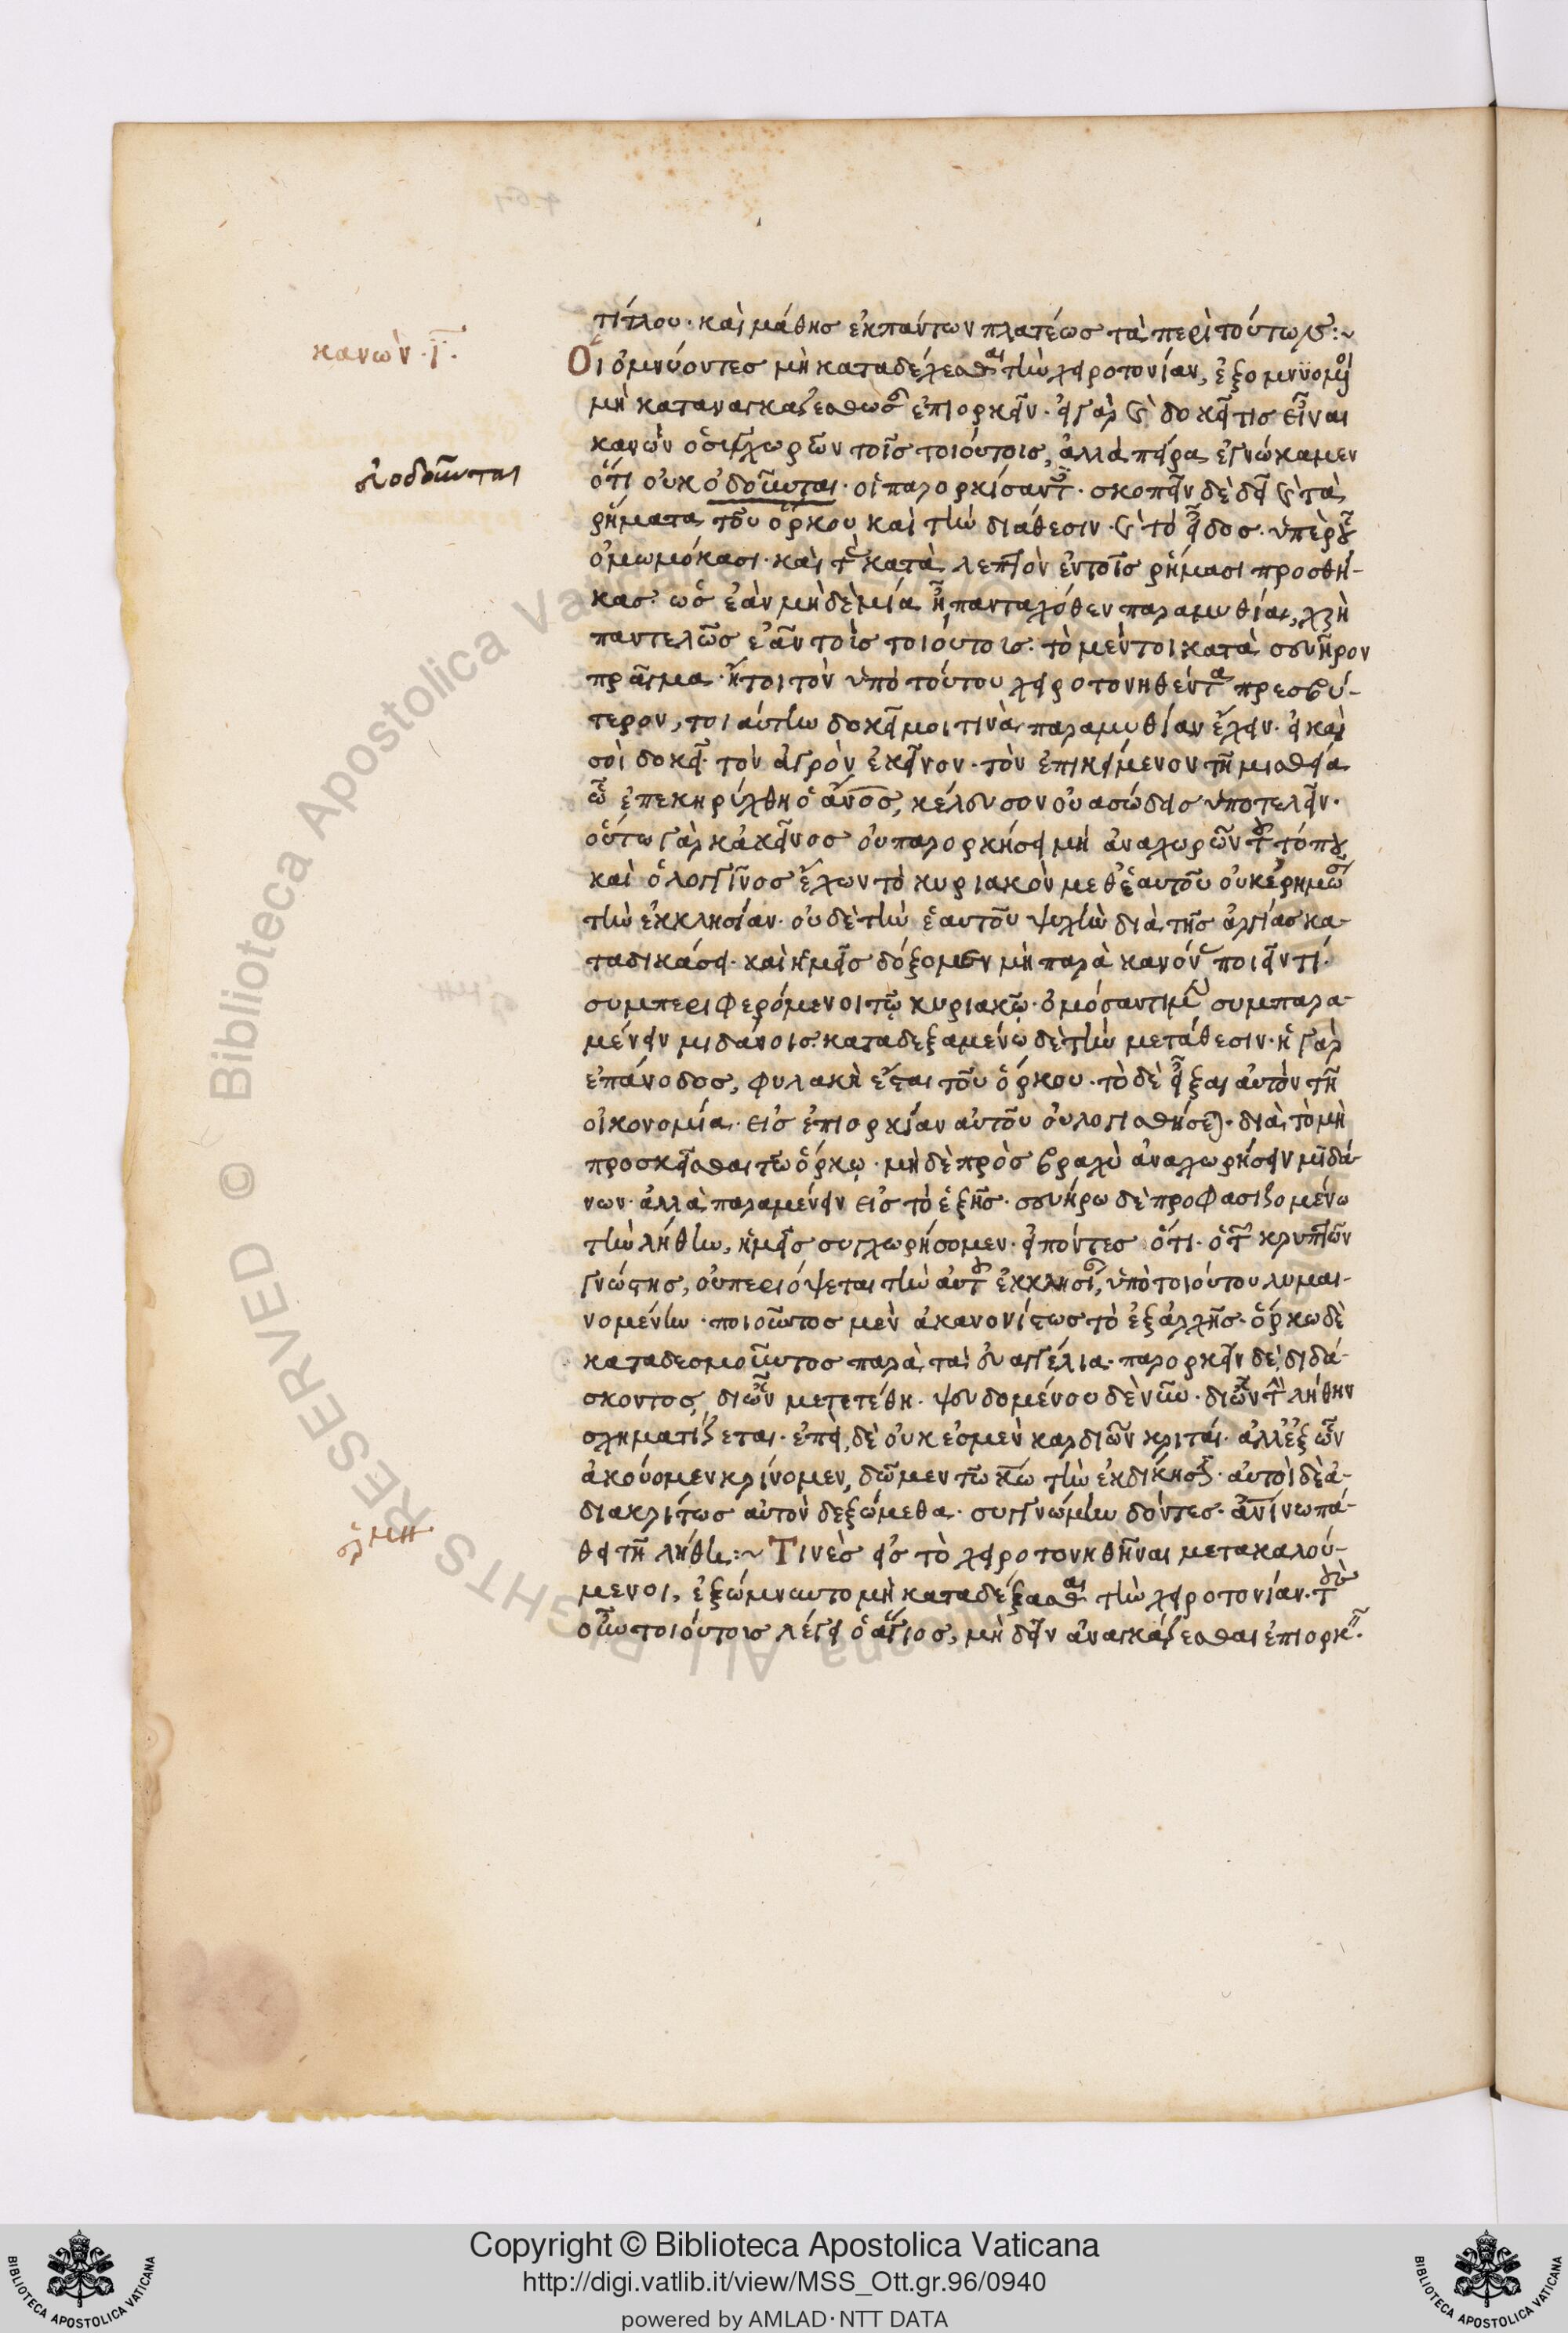 κανὼν·ι̅·
εὐοδοῦνται
ἑρμη
τίτλου· καὶ μάθης ἐκ πάντων πλατέως τὰ περὶ τούτων:~
Οἱ ὀμνύοντες μὴ καταδέχεσθαι τὴν χειροτονίαν, ἐξομνύομενοι
μὴ καταναγκαζέσθωσαν ἐπιορκεῖν· εἰ γὰρ καὶ δοκεῖ τις εἶναι
κανὼν ὁ συγχωρῶν τοῖς τοιούτοις, ἀλλὰ πείρα ἐγνώκαμεν
ὅτι οὐκ ὁδοῦνται· οἱ παρορκίσαντες· σκοπεῖν δὲ δεῖ καὶ τὰ
ρήματα τοῦ ὅρκου καὶ τὴν διάθεσιν· καὶ τὸ εἶδος· ὑπὲρ οὗ
ὀμωμόκασι· καὶ τὰς κατὰ λεπτὸν ἐν τοῖς ρήμασι προσθή-
κας· ὡς ἐὰν μὴ δὲ μία ἦ πανταχόθεν παραμυθία, χρὴ
παντελῶς ἐᾶν τοῖς τοιούτοις· τὸ μέντοι κατὰ σευῆρον
πρᾶγμα· ἤτοι τὸν ὑπὸ τούτου χειροτονηθέντα πρεσβύ-
τερον, τοιαύτην δοκεῖ μοι τινὰ παραμυθίαν ἔχειν· εἰ καὶ
σοὶ δοκεῖ· τὸν ἀγρὸν ἐκεῖνον· τὸν ἐπικείμενον τῆ μισθεία
ὧ ἐπεκηρύχθη ὁ α̅ν̅ο̅ς, κέλευσον οὐασώδοις ὑποτελεῖν·
οὕτω γὰρ κἀκεῖνος οὐ παρορκήσει μὴ ἀναχωρῶν τοῦ τόπου
καὶ ὁ λογγῖνος ἔχων τὸ κυριακὸν μεθ' ἑαυτοῦ οὐκ ἐρημώσει
τὴν ἐκκλησίαν· οὐδὲ τὴν ἑαυτοῦ ψυχὴν διὰ τῆς ἀργίας κα-
ταδικάσει· καὶ ἡμεῖς δόξομεν μὴ παρὰ κανόνας ποιεῖν τί·
συμπεριφερόμενοι τῷ κυριακῷ· ὀμόσαντι μὲν συμπαρα-
μένειν μιδάνοις· καταδεξαμένῳ δὲ τὴν μετάθεσιν· ἡ γὰρ
ἐπάνοδος, φυλακὴ ἔσται τοῦ ὅρκου· τὸ δὲ εἶξαι αὐτὸν τῆ
οἰκονομία· εἰς ἐπιορκίαν αὐτοῦ οὐ λογισθήσεται· διὰ τὸ μὴ
προσκεῖσθαι τῶ ὅρκῳ· μὴ δὲ πρὸς βραχὺ ἀναχωρήσειν μιδά-
νων· ἀλλὰ παραμένειν εἰς τὸ ἑξῆς· σευήρω δὲ προφασιζομένω
τὴν λήθην, ἡμεῖς συγχωρήσομεν· εἰπόντες ὅτι· ὁ τῶν κρυπτῶν
γνώστης, οὐ περιόψεται τὴν αὐτοῦ ἐκκλησίαν, ὑπὸ τοιούτου λυμαι-
νομένην· ποιοῦντος μὲν ἀκανονίστως τὸ ἐξ ἀρχῆς· ὅρκω δὲ
καταδεσμοῦντος παρὰ τὰ εὐαγγέλια· παρορκεῖν δὲ διδά-
σκοντος, δι' ὧν μετετέθη· ψευδομένου δὲ νῦν· δι' ὧν τὴν λήθην
σχηματίζεται· ἐπεὶ δὲ οὐκ ἐσμὲν καρδιῶν κριταί· ἀλλ' ἐξ ὧν
ἀκούομεν κρίνομεν, δῶμεν τῶ κ̅ω τὴν ἐκδίκησιν· αὐτοὶ δὲ ἀ-
διακρίτως αὐτὸν δεξώμεθα· συγγνώμην δόντες· ἀ̅νίνω πά-
θει τῆ λήθη:~ Τινὲς εἰς τὸ χειροτονηθῆναι μετακαλού-
μενοι, ἐξώμνυντο μὴ καταδέξασθαι τὴν χειροτονίαν· τοῖς
οὖν τοιούτοις λέγει ὁ ἅγιος, μὴ δεῖν ἀναγκάζεσθαι ἐπιορκεῖν·
Copyright © Biblioteca Apostolica Vaticana
http://digi.vatlib.it/view/MSS_Ott.gr.96/0940
powered by AMLAD·NTT DATA